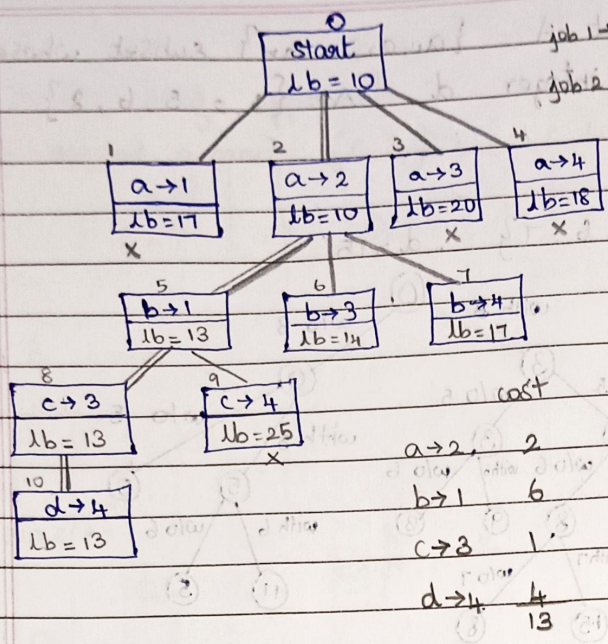 0
start
lb = 10
job 1
job 2
1
a→1
lb=17
x
2
a→2
lb=10
3
a→3
lb=20
x
4
a→4
lb=18
x
5
b→1
lb=13
6
b→3
lb=14
7
b→4
lb=17
8
c→3
lb=13
9
c→4
lb=25
x
10
d→4
lb=13
cost
a→2. 2
b→1 6
c→3 1
d→4 4
13